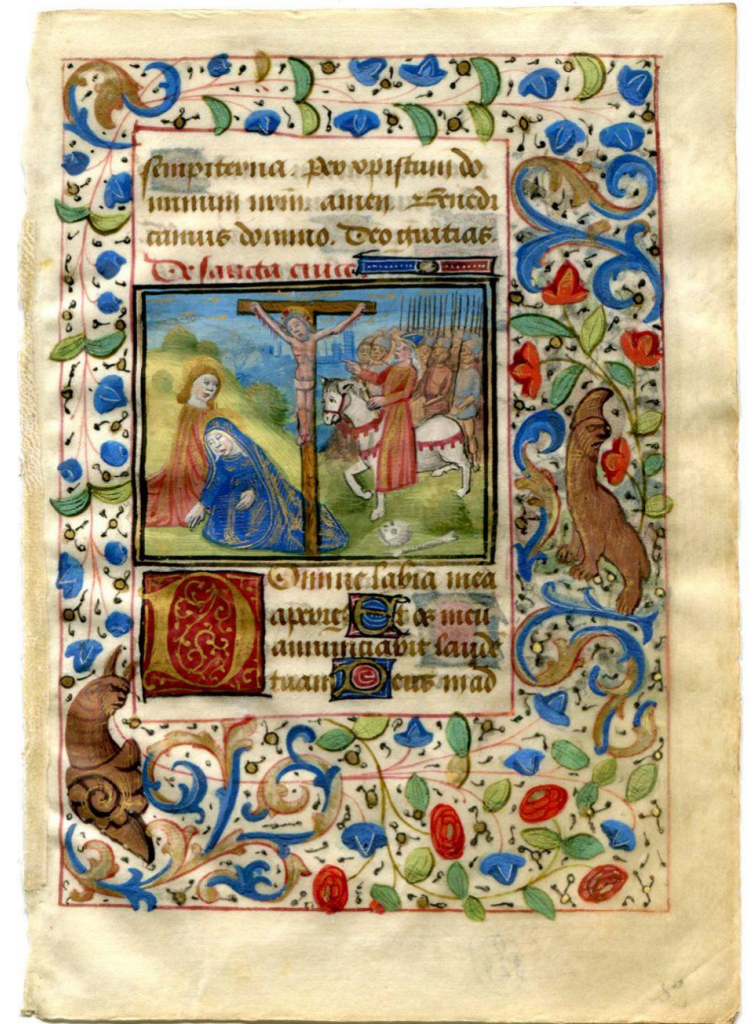 sempiterna. Per xpistum do
minum nrm̄. amen. Benedi
camus domino. Deo gratias.
De sancta cruce
Domine labia mea
aperies Et os meū
annunciabit laude
tuam Deus in ad